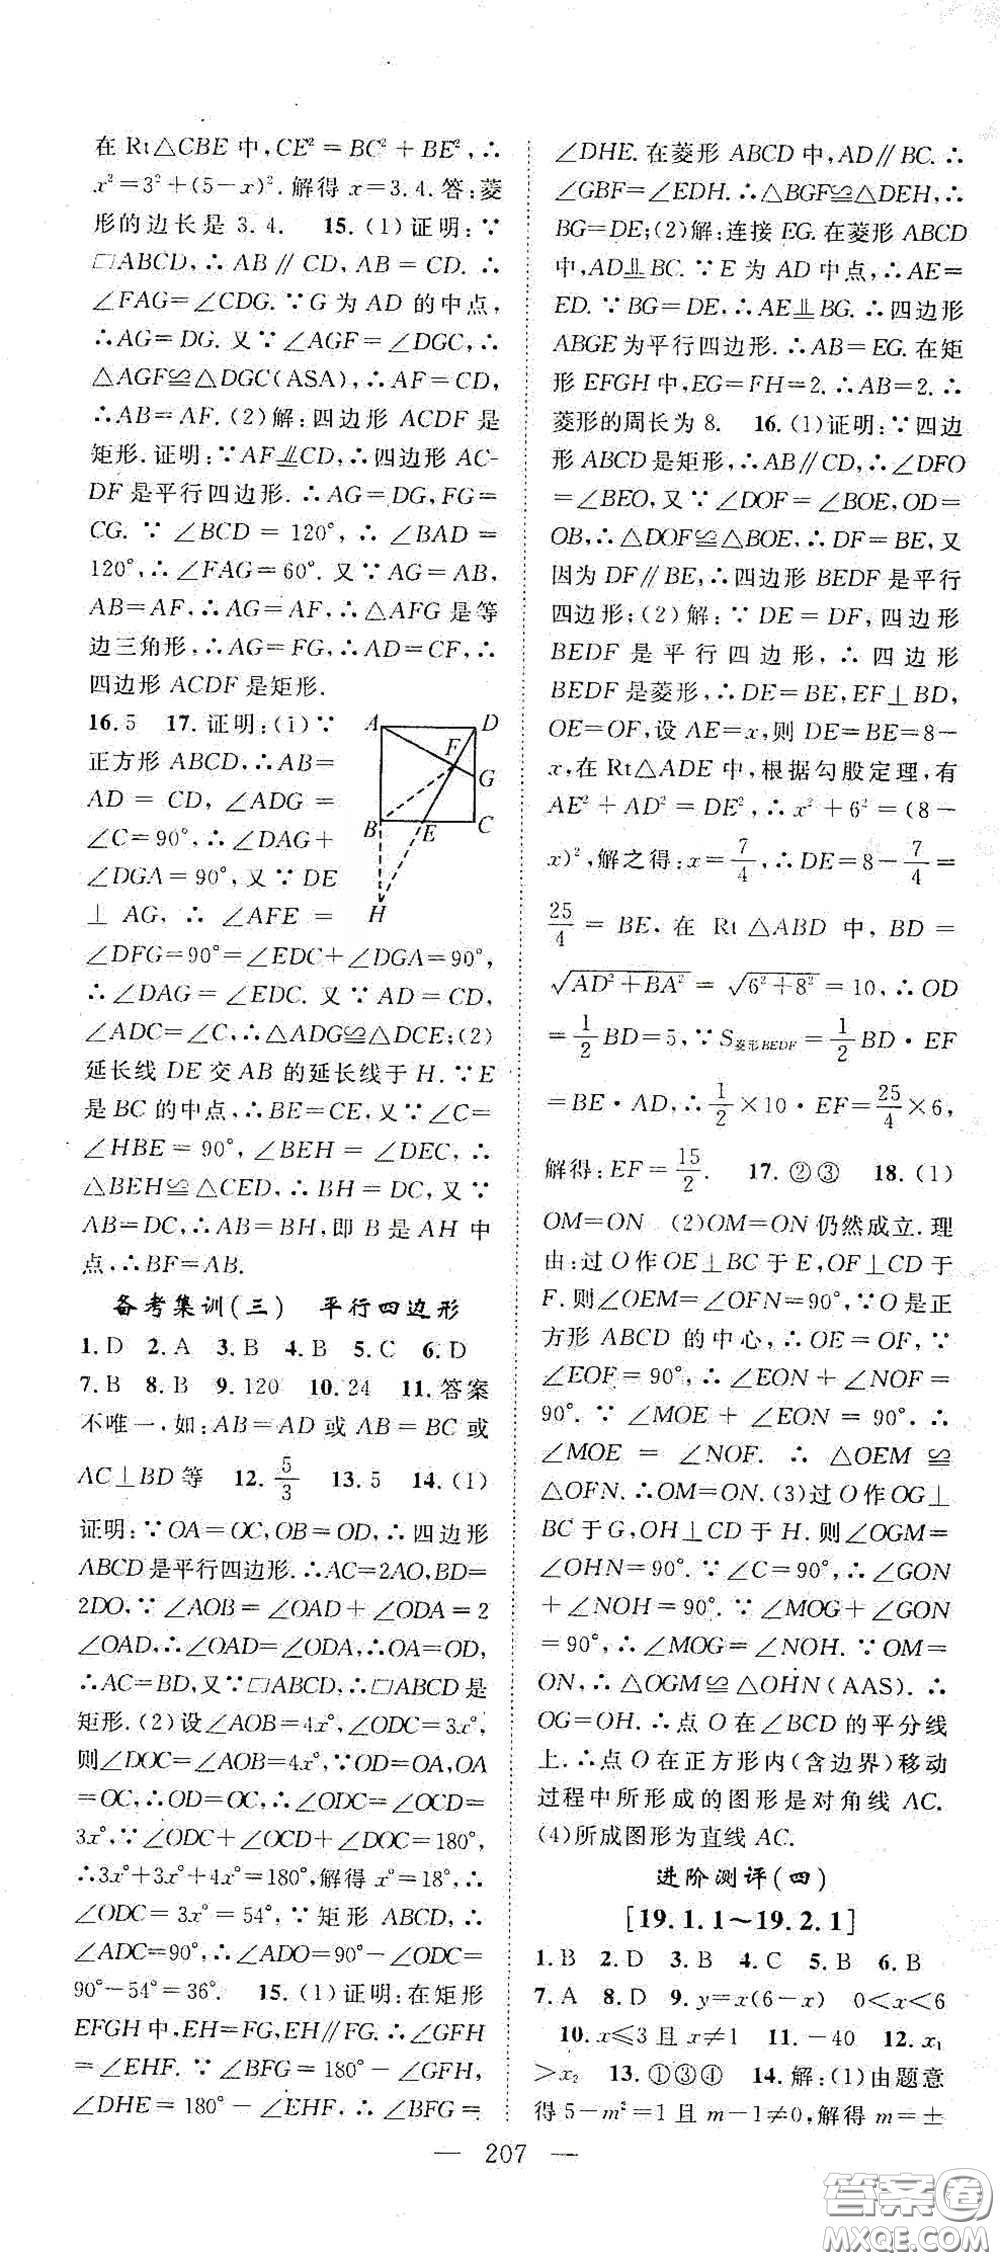 在 Rt△CBE 中,CE²=BC²+BE²,∴
x²=3²+(5-x)².解得 x=3.4.答:菱
形的边长是 3.4. 15.(1)证明:∵
▱ABCD,∴AB∥CD,AB=CD.∴
∠FAG=∠CDG.∵G 为 AD 的中点,
∴AG=DG.又∵∠AGF=∠DGC,∴
△AGF≌△DGC(ASA),∴AF=CD,
∴AB=AF.(2)解:四边形 ACDF 是
矩形.证明:∵AF⫫CD,∴四边形 AC-
DF 是平行四边形.∴AG=DG,FG=
CG.∵∠BCD=120°,∴∠BAD=
120°,∴∠FAG=60°.又∵AG=AB,
AB=AF,∴AG=AF,∴△AFG 是等
边三角形,∴AG=FG,∴AD=CF,∴
四边形 ACDF 是矩形.
16.5 17.证明:(1)∵
正方形 ABCD,∴AB=
AD=CD,∠ADG=
∠C=90°,∴∠DAG+
∠DGA=90°,又∵DE
⊥AG,∴∠AFE=
A D F G B E C H
∠DFG=90°=∠EDC+∠DGA=90°,
∴∠DAG=∠EDC.∵AD=CD,
∠ADC=∠C,∴△ADG≌△DCE;(2)
延长线 DE 交 AB 的延长线于 H.∵E
是 BC 的中点,∴BE=CE,又∵∠C=
∠HBE=90°,∠BEH=∠DEC,∴
△BEH≌△CED,∴BH=DC,又∵
AB=DC,∴AB=BH,即 B 是 AH 中
点,∴BF=AB.
备考集训(三) 平行四边形
1.D 2.A 3.B 4.B 5.C 6.D
7.B 8.B 9.120 10.24 11.答案
不唯一,如:AB=AD 或 AB=BC 或
AC⊥BD 等 12.5/3 13.5 14.(1)
证明:∵OA=OC,OB=OD,∴四边形
ABCD 是平行四边形.∴AC=2AO,BD=
2DO,∵∠AOB=∠OAD+∠ODA=2
∠OAD,∴∠OAD=∠ODA,∴OA=OD,
∴AC=BD,又∵▱ABCD,∴▱ABCD 是
矩形.(2)设∠AOB=4x°,∠ODC=3x°,
则∠DOC=∠AOB=4x°.∵OD=OA,OA
=OC,∴OD=OC,∴∠ODC=∠OCD=
3x°,∵∠ODC+∠OCD+∠DOC=180°,
∴3x°+3x°+4x°=180°,解得 x°=18°,∴
∠ODC=3x°=54°,∵矩形 ABCD,∴
∠ADC=90°,∴∠ADO=∠ADC-∠ODC=
90°-54°=36°. 15.(1)证明:在矩形
EFGH 中,EH=FG,EH∥FG.∴∠GFH
=∠EHF.∵∠BFG=180°-∠GFH,
∠DHE=180°-∠EHF.∴∠BFG=
∠DHE.在菱形 ABCD 中,AD∥BC.∴
∠GBF=∠EDH.∴△BGF≌△DEH,∴
BG=DE;(2)解:连接 EG.在菱形 ABCD
中,AD⫫BC.∵E 为 AD 中点,∴AE=
ED.∵BG=DE,∴AE⫫BG.∴四边形
ABGE 为平行四边形.∴AB=EG.在矩
形 EFGH 中,EG=FH=2.∴AB=2.∴
菱形的周长为 8. 16.(1)证明:∵四边
形 ABCD 是矩形,∴AB∥CD,∴∠DFO
=∠BEO,又∵∠DOF=∠BOE,OD=
OB,∴△DOF≌△BOE,∴DF=BE,又
因为 DF∥BE,∴四边形 BEDF 是平行
四边形;(2)解:∵DE=DF,四边形
BEDF 是平行四边形,∴四边形
BEDF 是菱形,∴DE=BE,EF⊥BD,
OE=OF,设 AE=x,则 DE=BE=8-
x,在 Rt△ADE 中,根据勾股定理,有
AE²+AD²=DE²,∴x²+6²=(8-
x)²,解之得:x=7/4,∴DE=8-7/4=
25/4=BE,在 Rt△ABD 中,BD=
√AD²+BA²=√6²+8²=10,∴OD
=1/2BD=5,∵S菱形BEDF=1/2BD·EF
=BE·AD,∴1/2×10·EF=25/4×6,
解得:EF=15/2. 17.②③ 18.(1)
OM=ON (2)OM=ON 仍然成立.理
由:过 O 作 OE⊥BC 于 E,OF⊥CD 于
F.则∠OEM=∠OFN=90°,∵O 是正
方形 ABCD 的中心,∴OE=OF,∵
∠EOF=90°,∴∠EON+∠NOF=
90°.∵∠MOE+∠EON=90°.∴
∠MOE=∠NOF.∴△OEM≌
△OFN.∴OM=ON.(3)过 O 作 OG⊥
BC 于 G,OH⊥CD 于 H.则∠OGM=
∠OHN=90°.∵∠C=90°,∴∠GON
+∠NOH=90°.∵∠MOG+∠GON
=90°,∴∠MOG=∠NOH.∵OM=
ON,∴△OGM≌△OHN(AAS).∴
OG=OH.∴点 O 在∠BCD 的平分线
上.∴点 O 在正方形内(含边界)移动
过程中所形成的图形是对角线 AC.
(4)所成图形为直线 AC.
进阶测评(四)
[19.1.1~19.2.1]
1.B 2.D 3.B 4.C 5.B 6.B
7.A 8.D 9.y=x(6-x) 0<x<6
10.x≤3 且 x≠1 11.-40 12.x₁
>x₂ 13.①③④ 14.解:(1)由题意
得 5-m²=1 且 m-1≠0,解得 m=±
— 207 —
答案圈
MXQE.COM